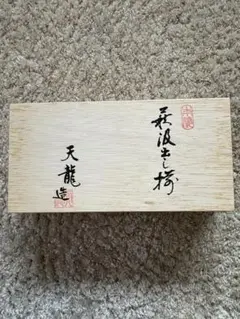 萩汲出し揃
天龍造